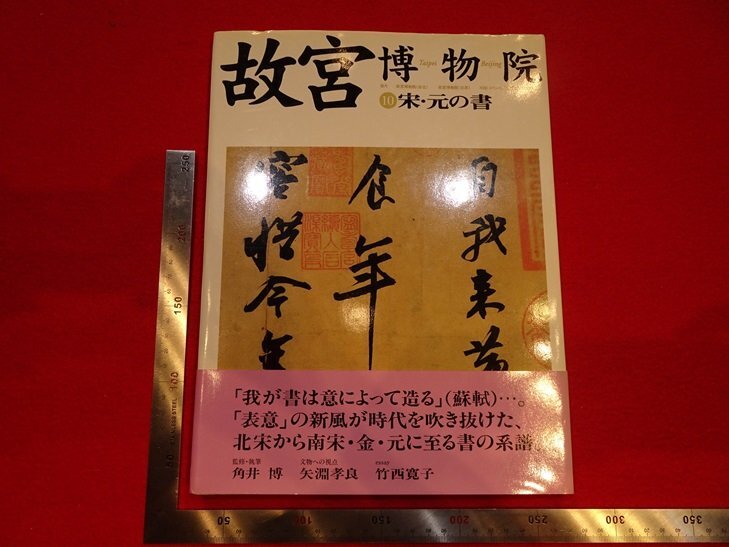 故宮博物院
Taipei
Beijing
10 宋・元の書
自我来黄
食年
容惜今年
「我が書は意によって造る」(蘇軾)…。
「表意」の新風が時代を吹き抜けた、
北宋から南宋・金・元に至る書の系譜。
監修・執筆
角井 博
文物への視点
矢淵孝良
essay
竹西寛子
250
200
150
100
50
STAINLESS STEEL
50
100
150
200
250
300
350